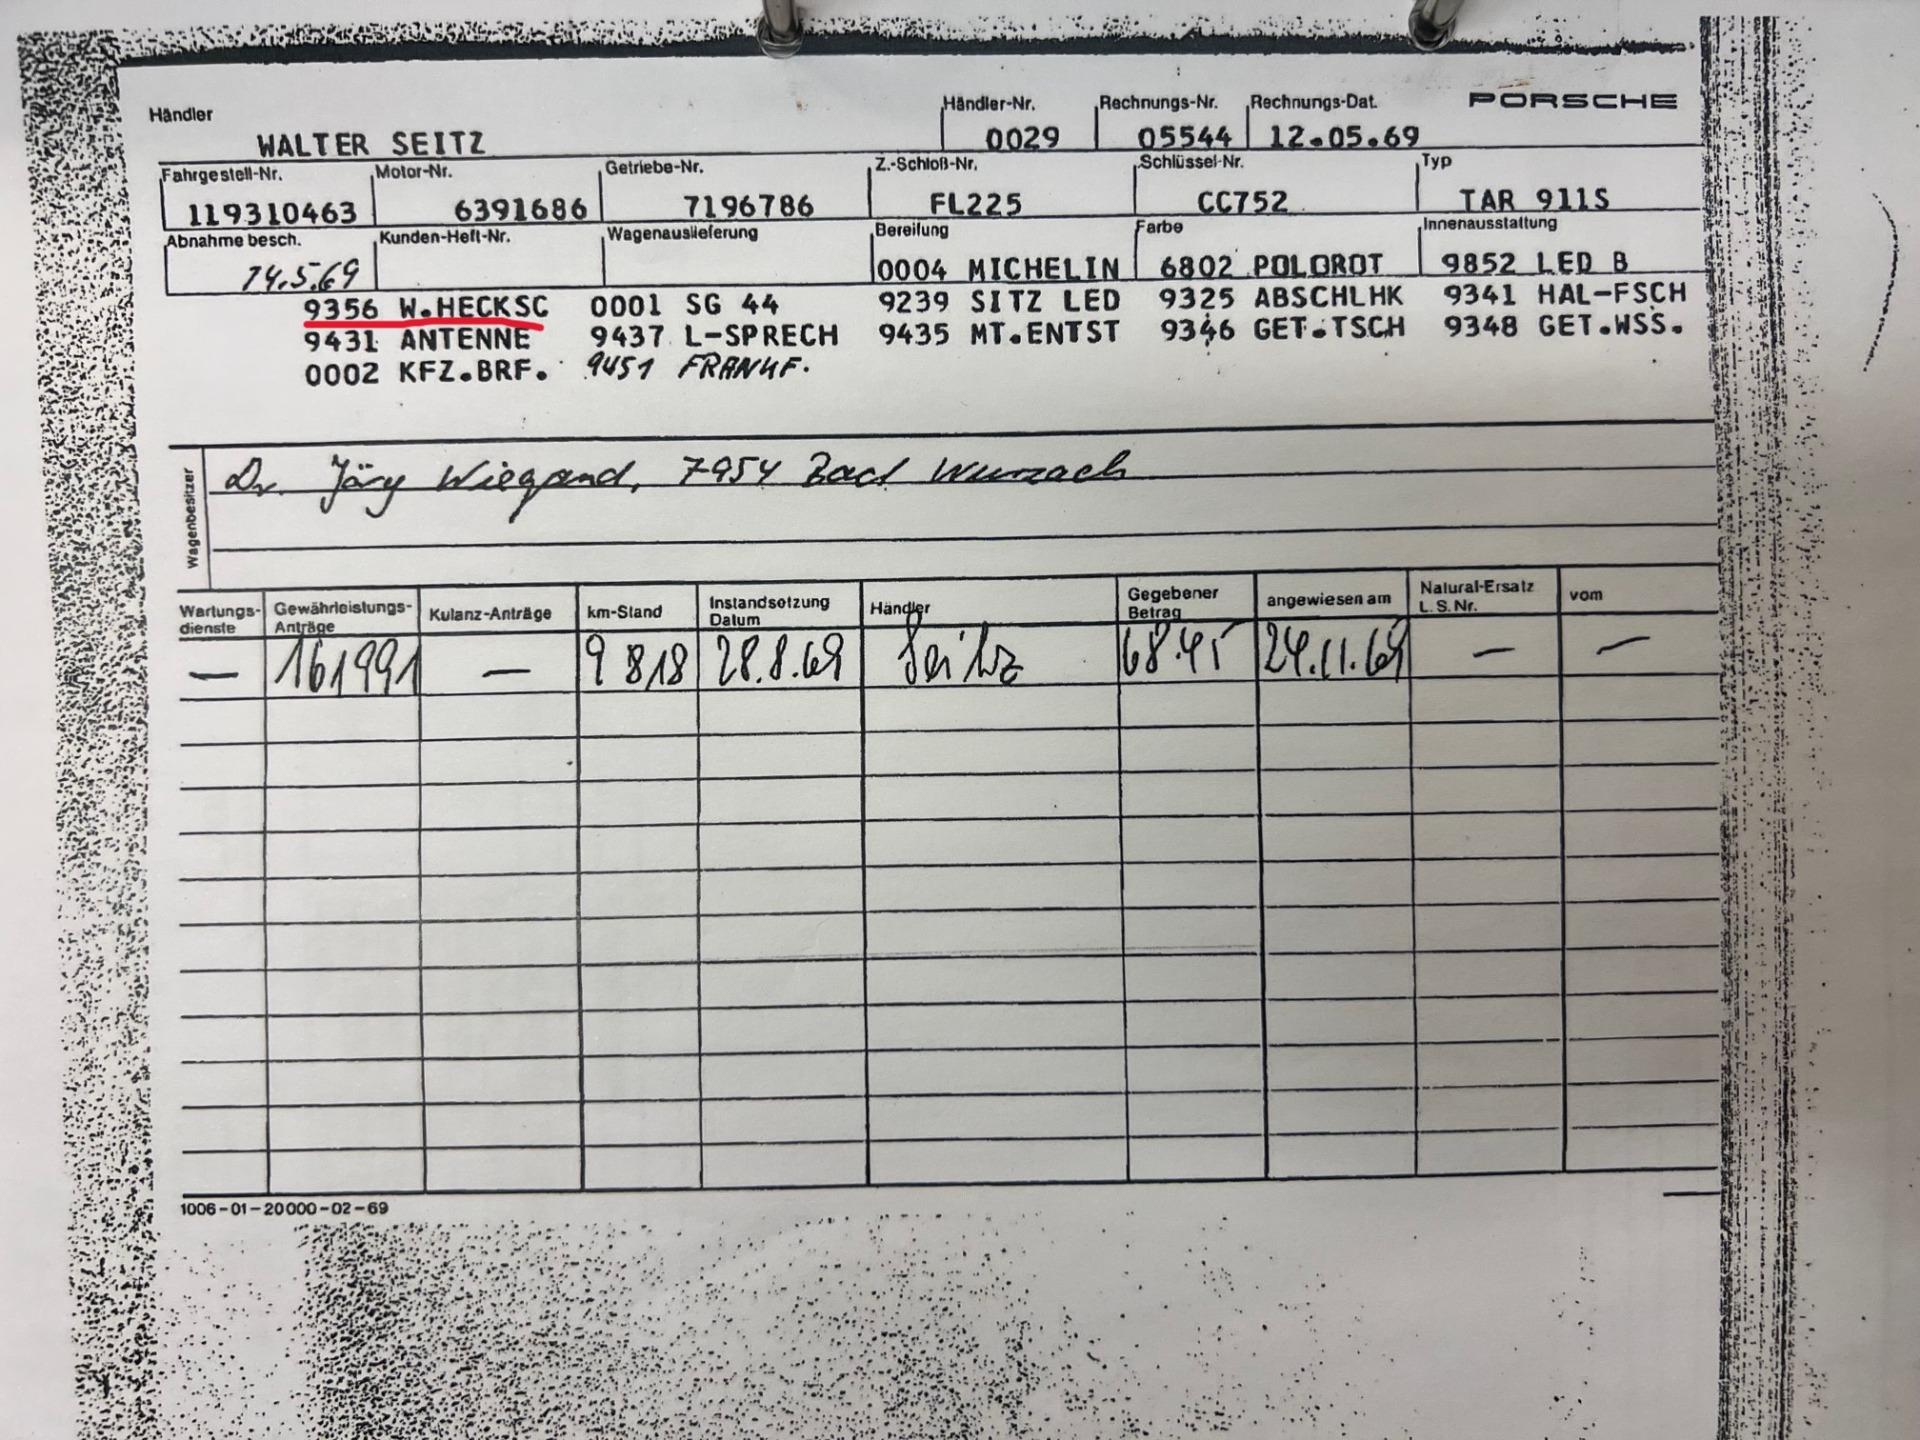 Händler Händler-Nr. Rechnungs-Nr. Rechnungs-Dat. PORSCHE
WALTER SEITZ 0029 05544 12.05.69
Fahrgestell-Nr. Motor-Nr. Getriebe-Nr. Z.-Schloß-Nr. Schlüssel-Nr. Typ
119310463 6391686 7196786 FL225 CC752 TAR 911S
Abnahme besch. Kunden-Heft-Nr. Wagenauslieferung Bereifung Farbe Innenausstattung
14.5.69 0004 MICHELIN 6802 POLOROT 9852 LED B
9356 W.HECKSC 0001 SG 44 9239 SITZ LED 9325 ABSCHLHK 9341 HAL-FSCH
9431 ANTENNE 9437 L-SPRECH 9435 MT.ENTST 9346 GET.TSCH 9348 GET.WSS.
0002 KFZ.BRF. 9451 FRANKF.
Wagenbesitzer
Dr. Jörg Wiegand, 7954 Bad Wurzach
Wartungs- Gewährleistungs- Kulanz-Anträge km-Stand Instandsetzung Händler Gegebener angewiesen am Natural-Ersatz vom
dienste Anträge Datum Betrag L.S.Nr.
— 161991 — 9 818 28.8.69 Seitz 68.45 24.11.69 — —
1006-01-20000-02-69